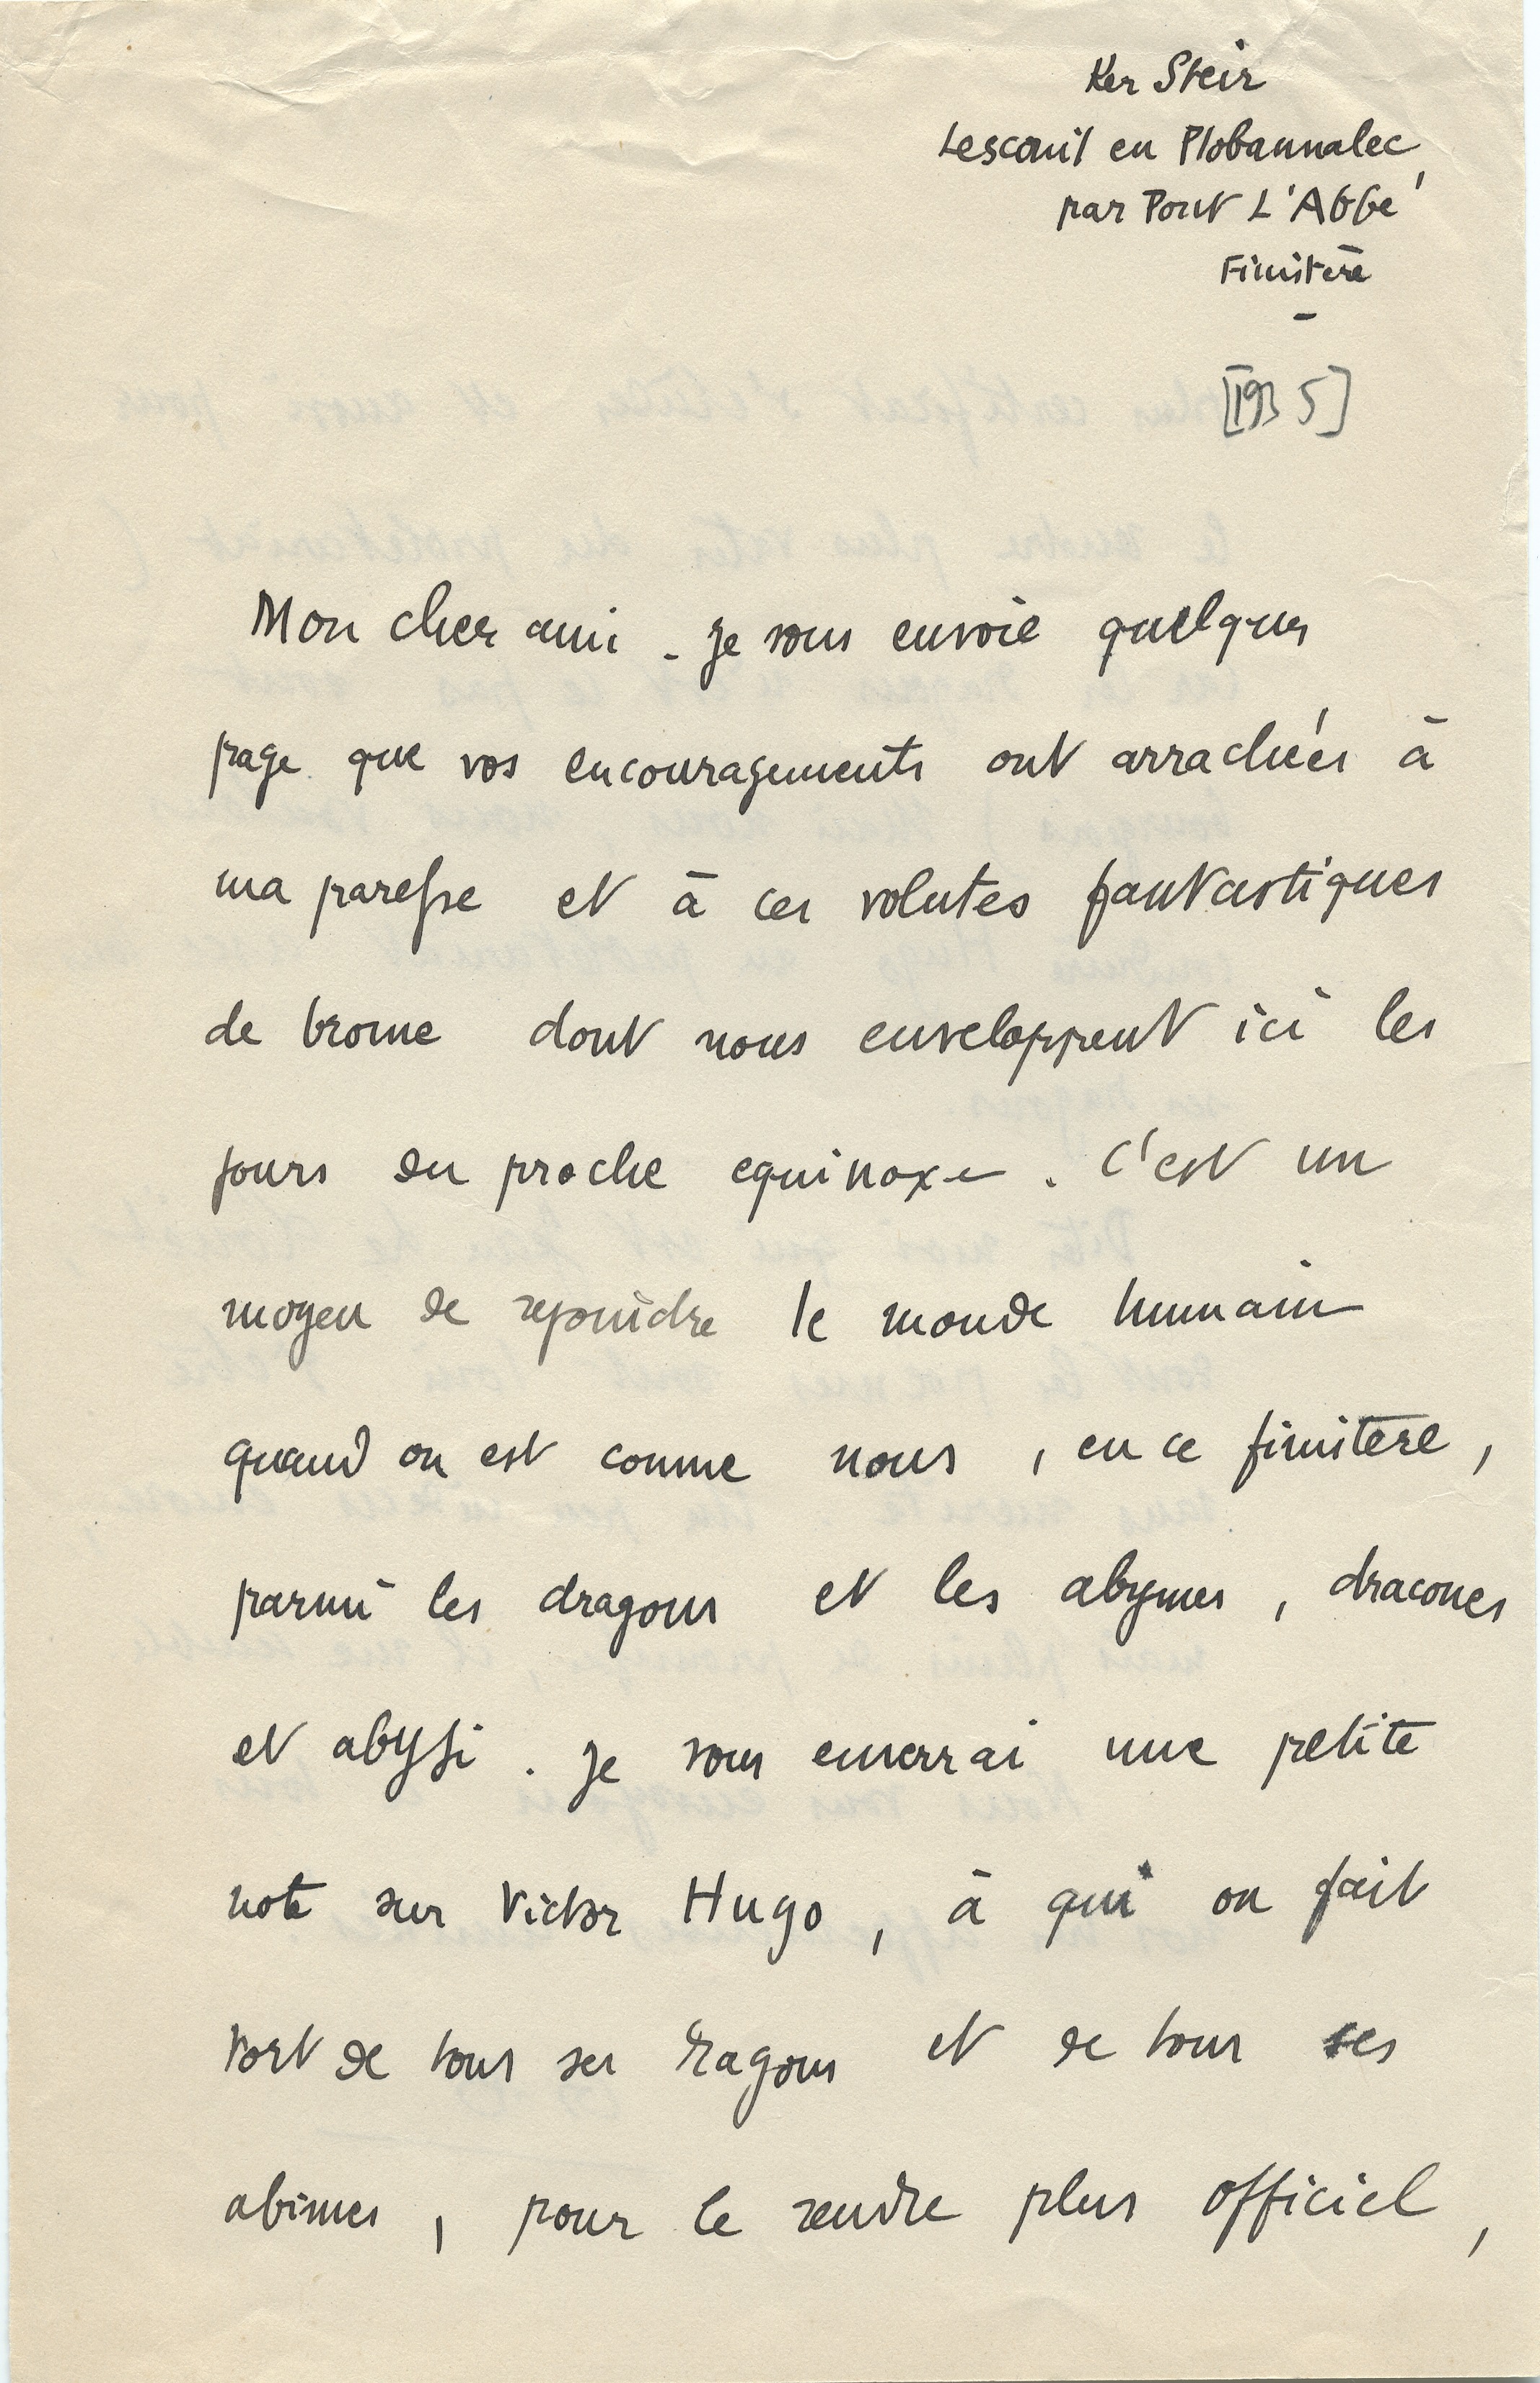 Ker Steir
Lesconil en Plobannalec,
par Pont L'Abbé
Finistère
-
[1935]
Mon cher ami - Je vous envoie quelques
page que vos encouragements ont arrachées à
ma paresse et à ces volutes fantastiques
de brome dont nous enveloppent ici les
jours du proche equinoxe. C'est un
moyen de rejoindre le monde humain
quand on est comme nous, en ce finistère,
parmi les dragons et les abymes, dracones
et abyssi. Je vous enverrai une petite
note sur Victor Hugo, à qui on fait
tort de tous ses dragons et de tous ses
abimes, pour le rendre plus officiel,